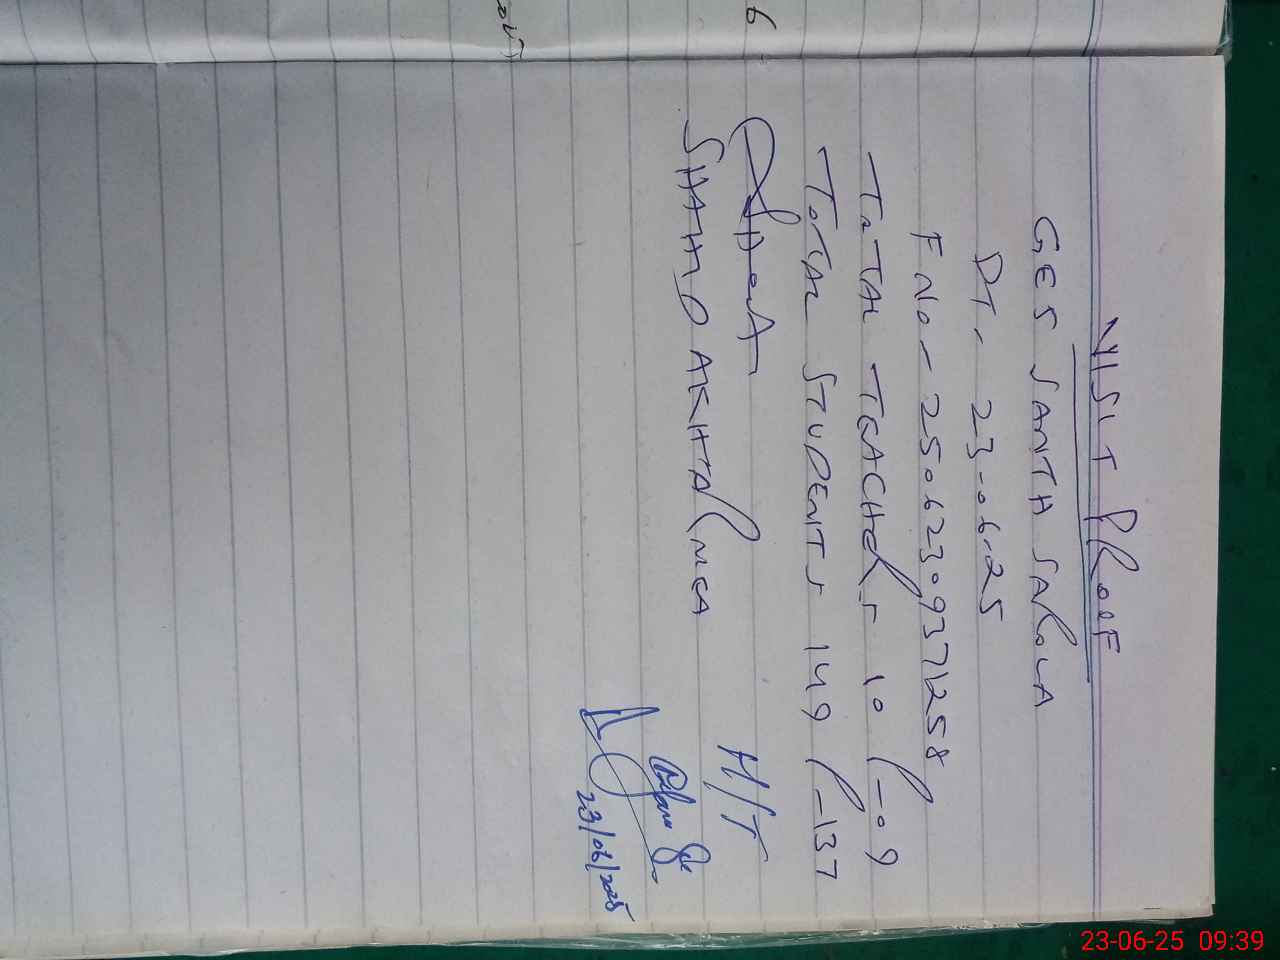 VISIT PROOF
GES SANTH SAROLA
DT. 23-06-25
F No- 25062309371258
TOTAL TEACHERS 10 P-09
TOTAL STUDENTS 149 P-137
SHAHID AKHTAR MEA
H/T
23/06/2025
6
23-06-25 09:39